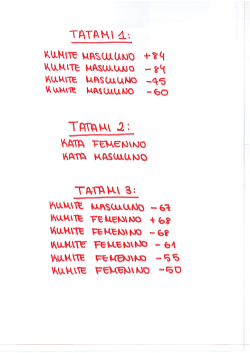 TATAMI 1:
KUMITE MASCULINO +84
KUMITE MASCULINO -84
KUMITE MASCULINO -75
KUMITE MASCULINO -60
TATAMI 2:
KATA FEMENINO
KATA MASCULINO
TATAMI 3:
KUMITE MASCULINO -67
KUMITE FEMENINO +68
KUMITE FEMENINO -68
KUMITE FEMENINO -61
KUMITE FEMENINO -55
KUMITE FEMENINO -50